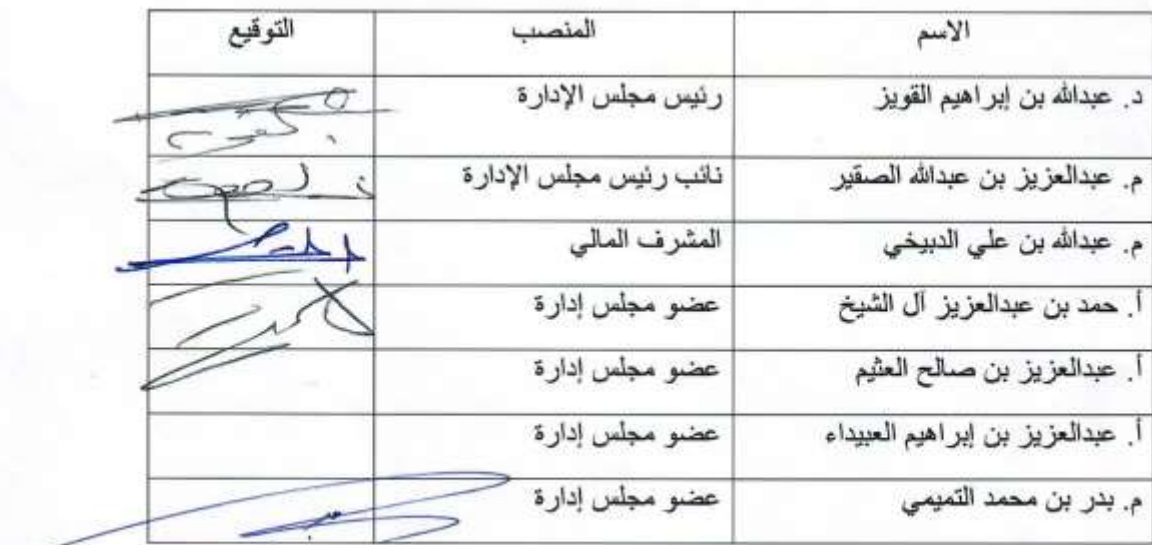 الاسم المنصب التوقيع
د. عبدالله بن إبراهيم القويز رئيس مجلس الإدارة
م. عبدالعزيز بن عبدالله الصقير نائب رئيس مجلس الإدارة
م. عبدالله بن علي الدبيخي المشرف المالي
أ. حمد بن عبدالعزيز آل الشيخ عضو مجلس إدارة
أ. عبدالعزيز بن صالح العثيم عضو مجلس إدارة
أ. عبدالعزيز بن إبراهيم العبيداء عضو مجلس إدارة
م. بدر بن محمد التميمي عضو مجلس إدارة